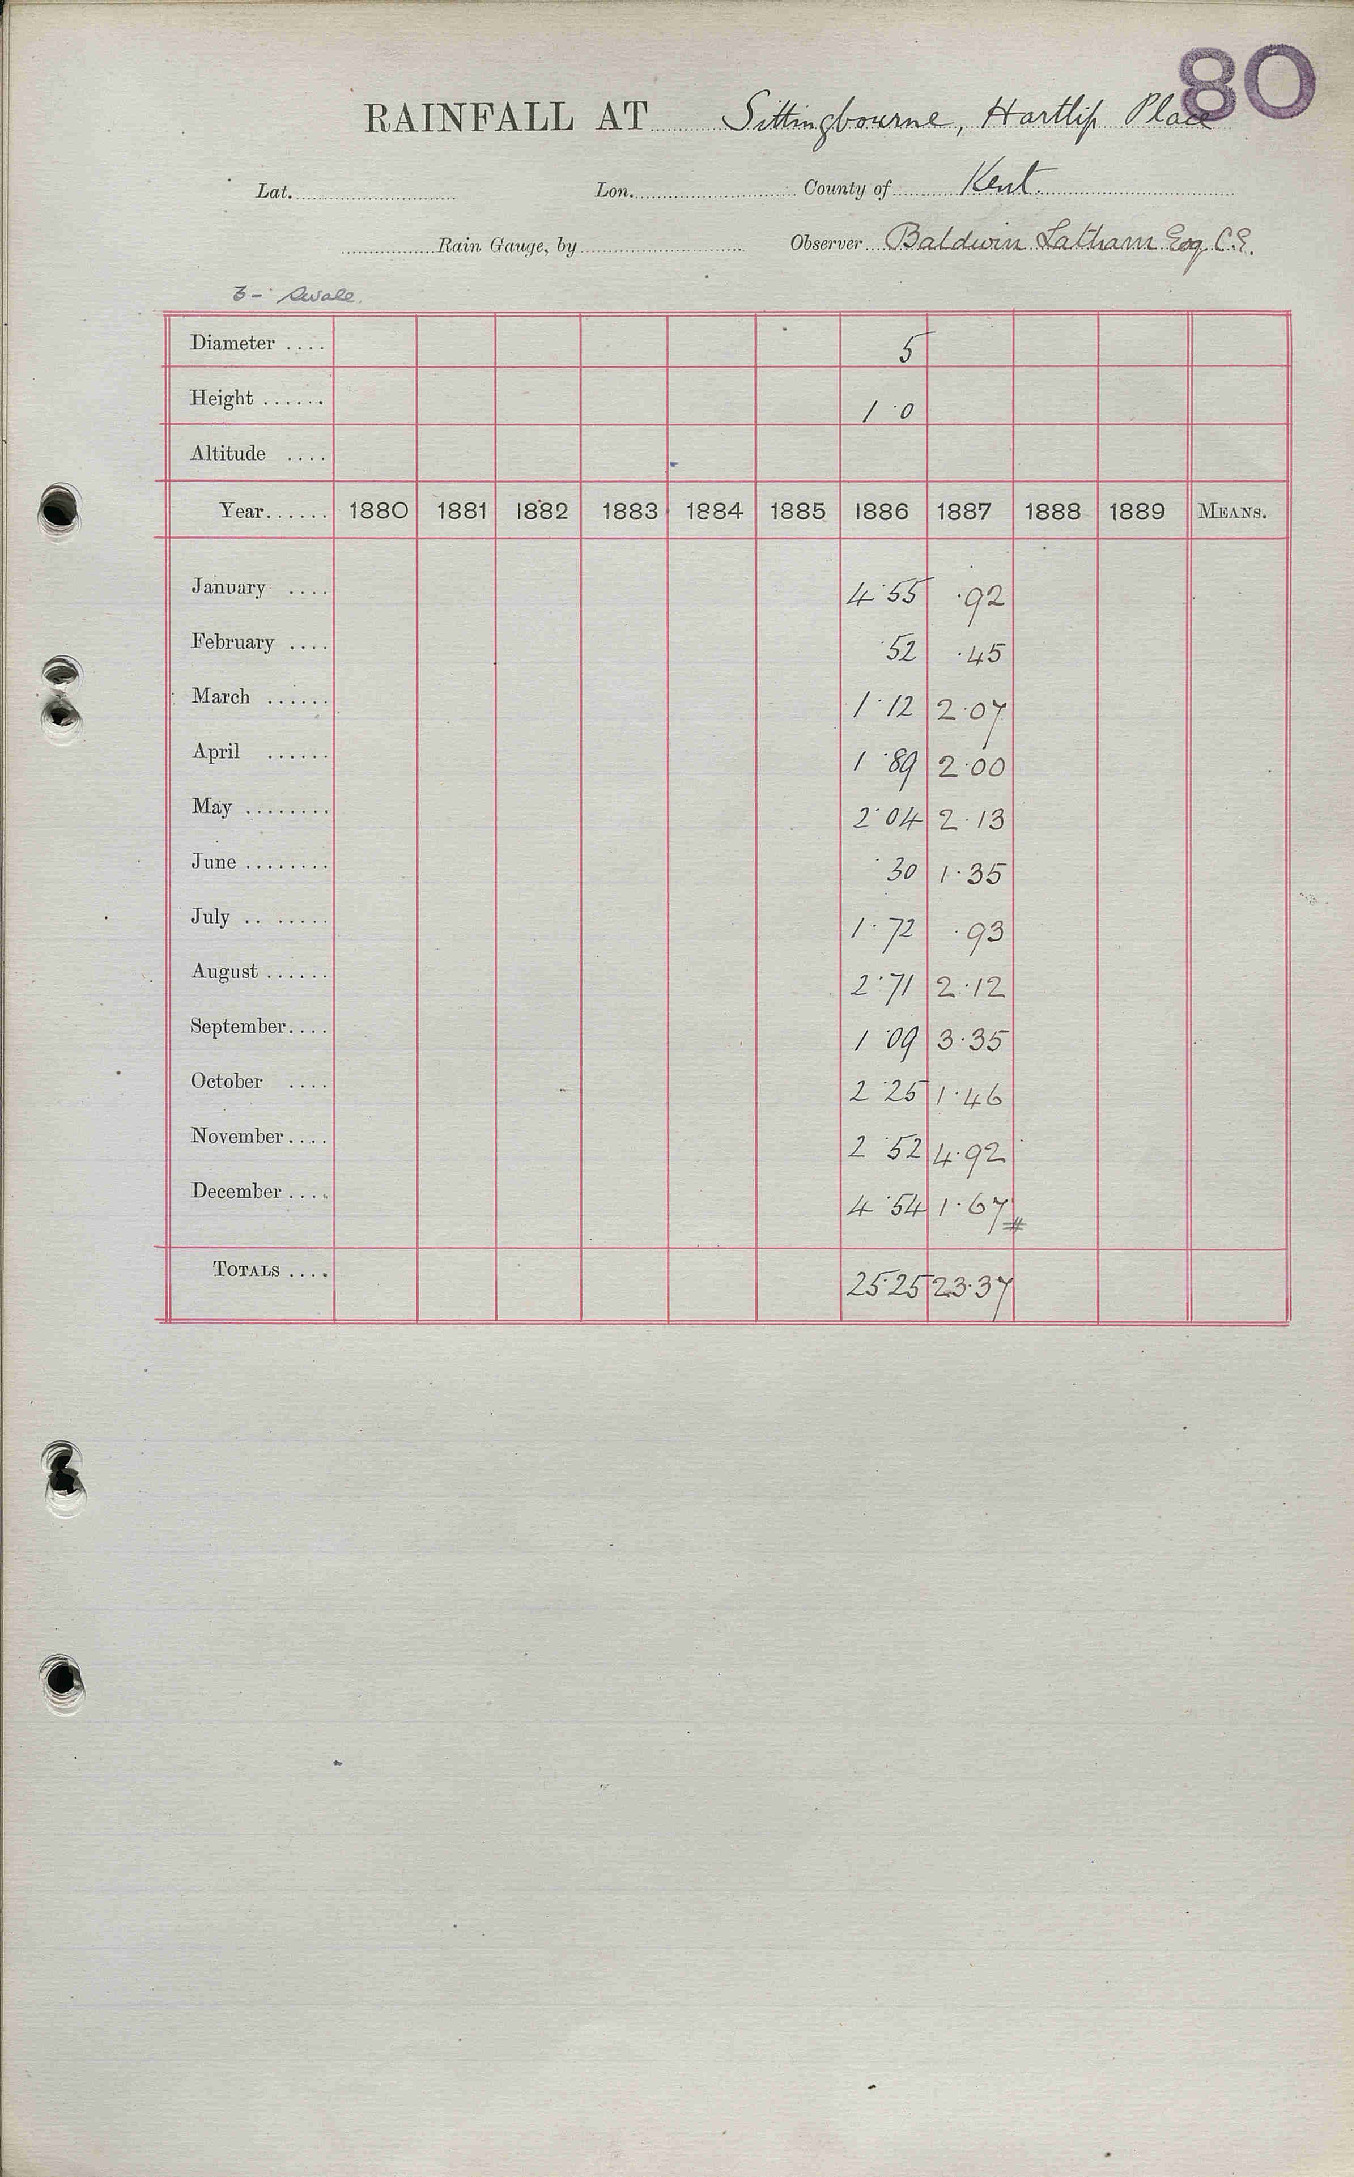 80
RAINFALL AT Sittingbourne, Hartlip Place
Lat. Lon. County of Kent.
Rain Gauge, by Observer Baldwin Latham Esq C.E.
Swale.
Diameter .... 5
Height ...... 1 0
Altitude ....
Year...... 1880 1881 1882 1883 1884 1885 1886 1887 1888 1889 MEANS.
January .... 4·55 ·92
February .... ·52 ·45
March ...... 1·12 2·07
April ...... 1·89 2·00
May ........ 2·04 2·13
June ........ ·30 1·35
July .. ..... 1·72 ·93
August ...... 2·71 2·12
September.... 1·09 3·35
October .... 2·25 1·46
November.... 2·52 4·92
December .... 4·54 1·67 #
TOTALS .... 25·25 23·37